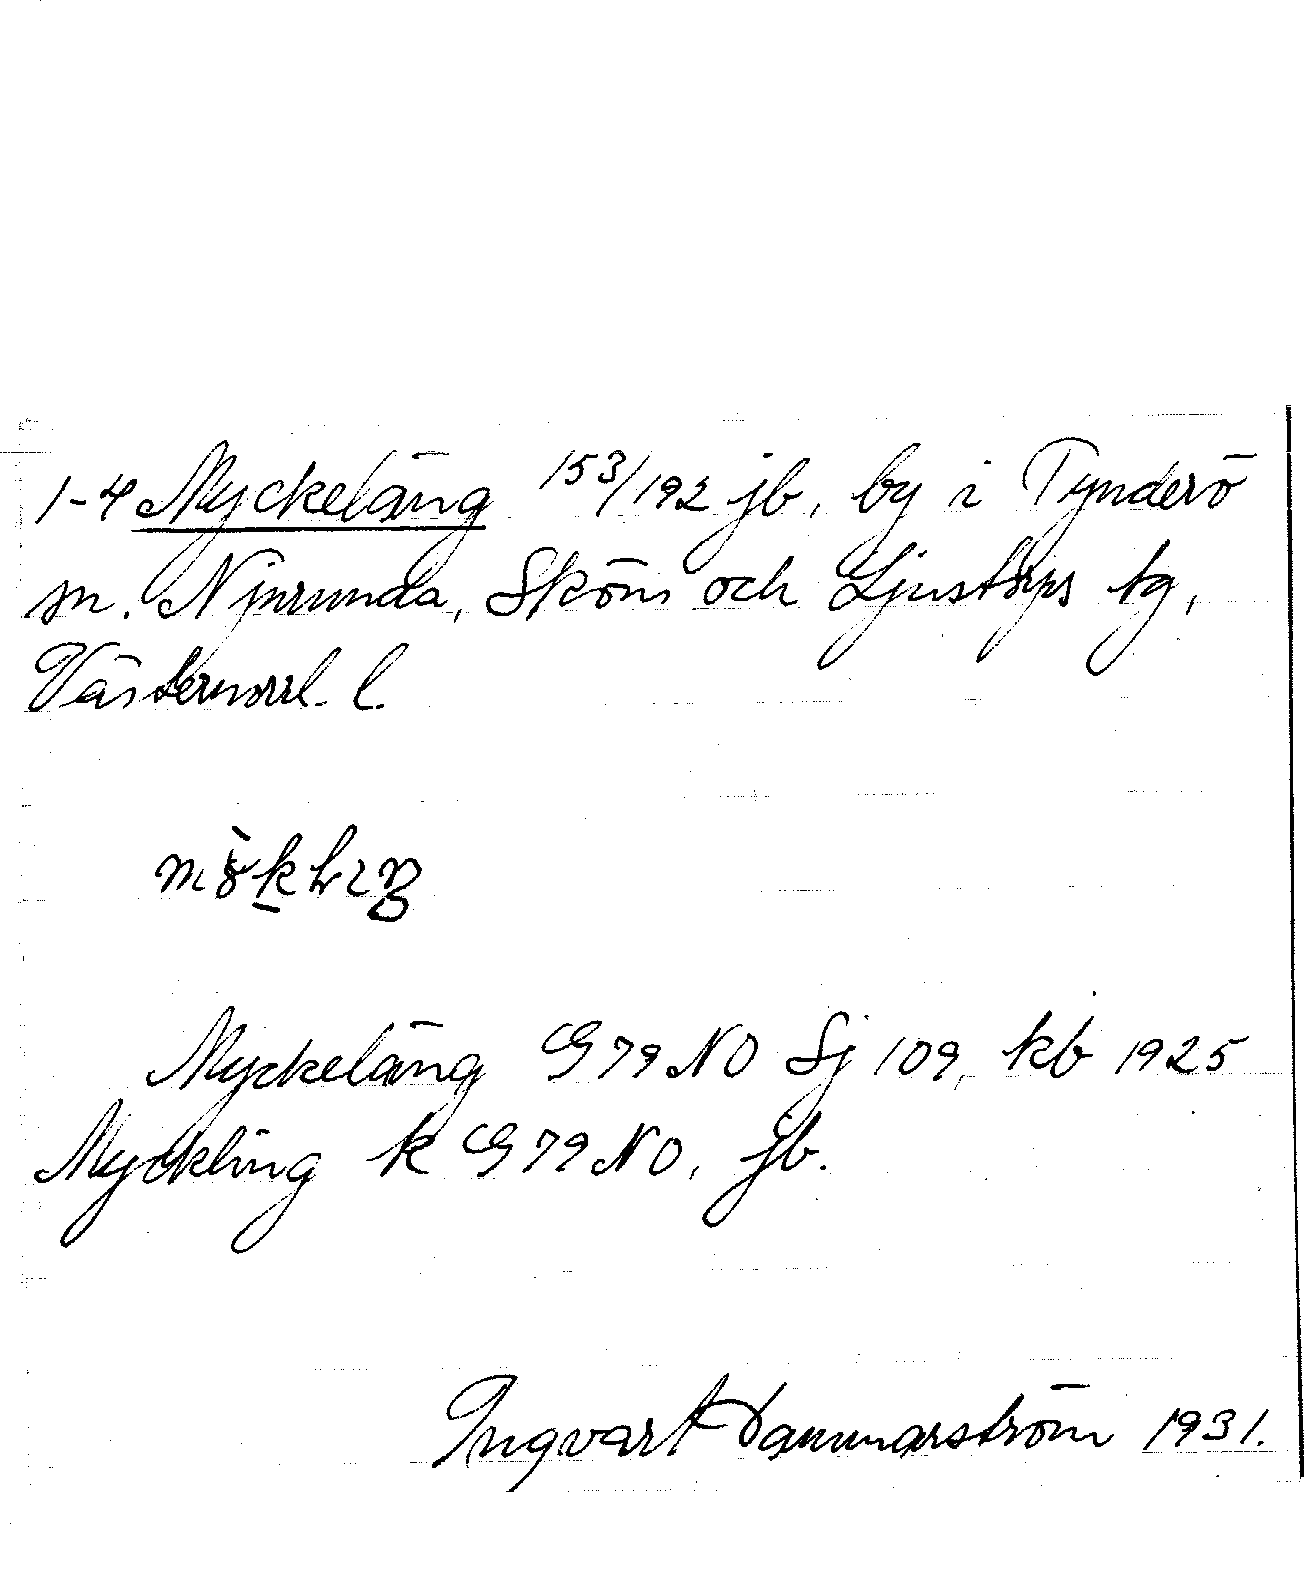 1-4 Myckeläng 153/192 jb, by i Tynderö
sn. Njurunda, Sköns och Ljustorps tg,
Västernorrl. l.
Myckeläng G79NO Sj 109, kb 1925
Myckling k G79NO, jb.
Ingvart Dammarström 1931.